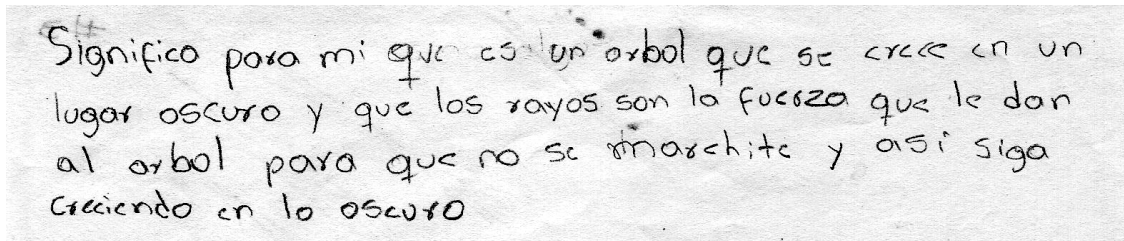 Significo para mi que es un arbol que se crece en un
lugar oscuro y que los rayos son la fuerza que le dan
al arbol para que no se marchite y asi siga
creciendo en lo oscuro